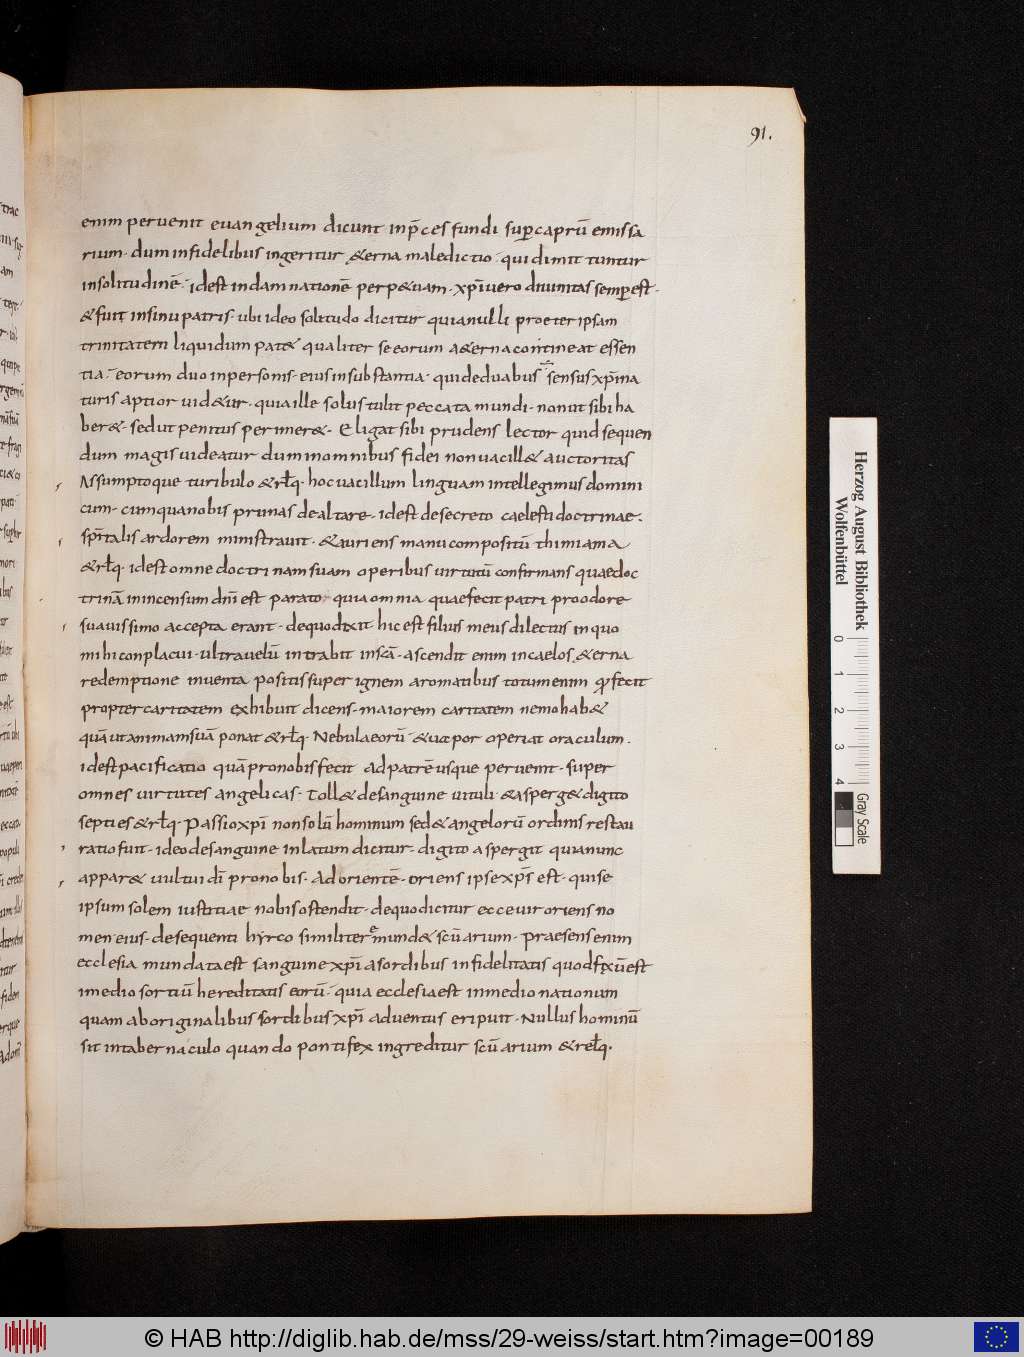 91.
enim peruenit euangelium dicunt inp̄ces fundi sup̄caprū emissa
rium· dum infidelibus ingeritur &erna maledictio· qui dimittuntur
insolitudinē· idest indamnationē perp&uam· xp̄i uero diuinitas semp̄ est·
& fuit insinu patris· ubi ideo solitudo dicitur quia nulli praeter ipsam
trinitatem liquidum pat& qualiter se eorum a&erna contineat essen
tia· eorum duo inpersonis· eius insubstantia· qui deduabus sensus xp̄i na
turis aptior uid&ur· quia ille solus tulit peccata mundi· non ut sibi ha
ber&· sed ut penitus perimer&· Eligat sibi prudens lector quid sequen
dum magis uideatur dum inomnibus fidei non uacill& auctoritas
Assumptoque turibulo &rłq· hoc uacillum linguam intellegimus domini
cum· cum qua nobis prunas de altare· idest desecreto caelesti doctrinae·
sp̄italis ardorem ministrauit· & auriens manu compositū thimiama
&rłq· idest omne doctrinam suam operibus uirtutū confirmans quae doc
trinā in incensum dn̄i est parata· quia omnia quae fecit patri pro odore
suauissimo accepta erant· de quo dixit hic est filius meus dilectus in quo
mihi conplacui· ultra uelū intrabit inscā· ascendit enim in caelos &erna
redemptione inuenta positis super ignem aromatibus totum enim quod fecit
propter caritatem exhibuit dicens· maiorem caritatem nemo hab&
quā ut animam suā ponat &rłq· Nebula eorū & uapor operiat oraculum·
idest pacificatio quā pro nobis fecit ad patrē usque peruenit· super
omnes uirtutes angelicas· Toll& de sanguine uituli· & asperg& digito
septies &rłq· Passio xp̄i non solū hominum sed & angelorū ordinis restau
ratio fuit· ideo de sanguine inlatum dicitur· digito aspergit quia nunc
appar& uultui dī pro nobis· Ad orientē· oriens ipse xp̄s est· qui se
ipsum solem iustitiae nobis ostendit· de quo dicitur ecce uir oriens no
men eius· de sequenti hyrco similiter emund& scūarium· Praesens enim
ecclesia mundata est sanguine xp̄i a sordibus infidelitatis quod fixū est
imedio sortiū hereditatis eorū· quia ecclesia est inmedio nationum
quam ab originalibus sordibus xp̄i aduentus eripuit· Nullus hominū
sit intabernaculo quando pontifex ingreditur scūarium &relq·
Herzog August Bibliothek
Wolfenbüttel
0 1 2 3 4
Gray Scale
© HAB http://diglib.hab.de/mss/29-weiss/start.htm?image=00189